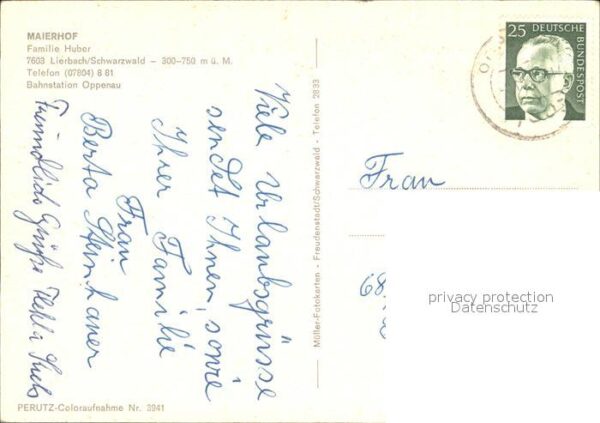 MAIERHOF
Familie Huber
7603 Lierbach/Schwarzwald – 300-750 m ü. M.
Telefon (07804) 8 81
Bahnstation Oppenau
Viele Urlaubsgrüsse
sendet Ihnen, sowie
Ihrer Familie
Frau
Berta Steinhauer
Freundliche Grüße
Müller-Fotokarten - Freudenstadt/Schwarzwald - Telefon 2833
PERUTZ-Coloraufnahme Nr. 3941
25
DEUTSCHE
BUNDESPOST
Frau
68
privacy protection
Datenschutz